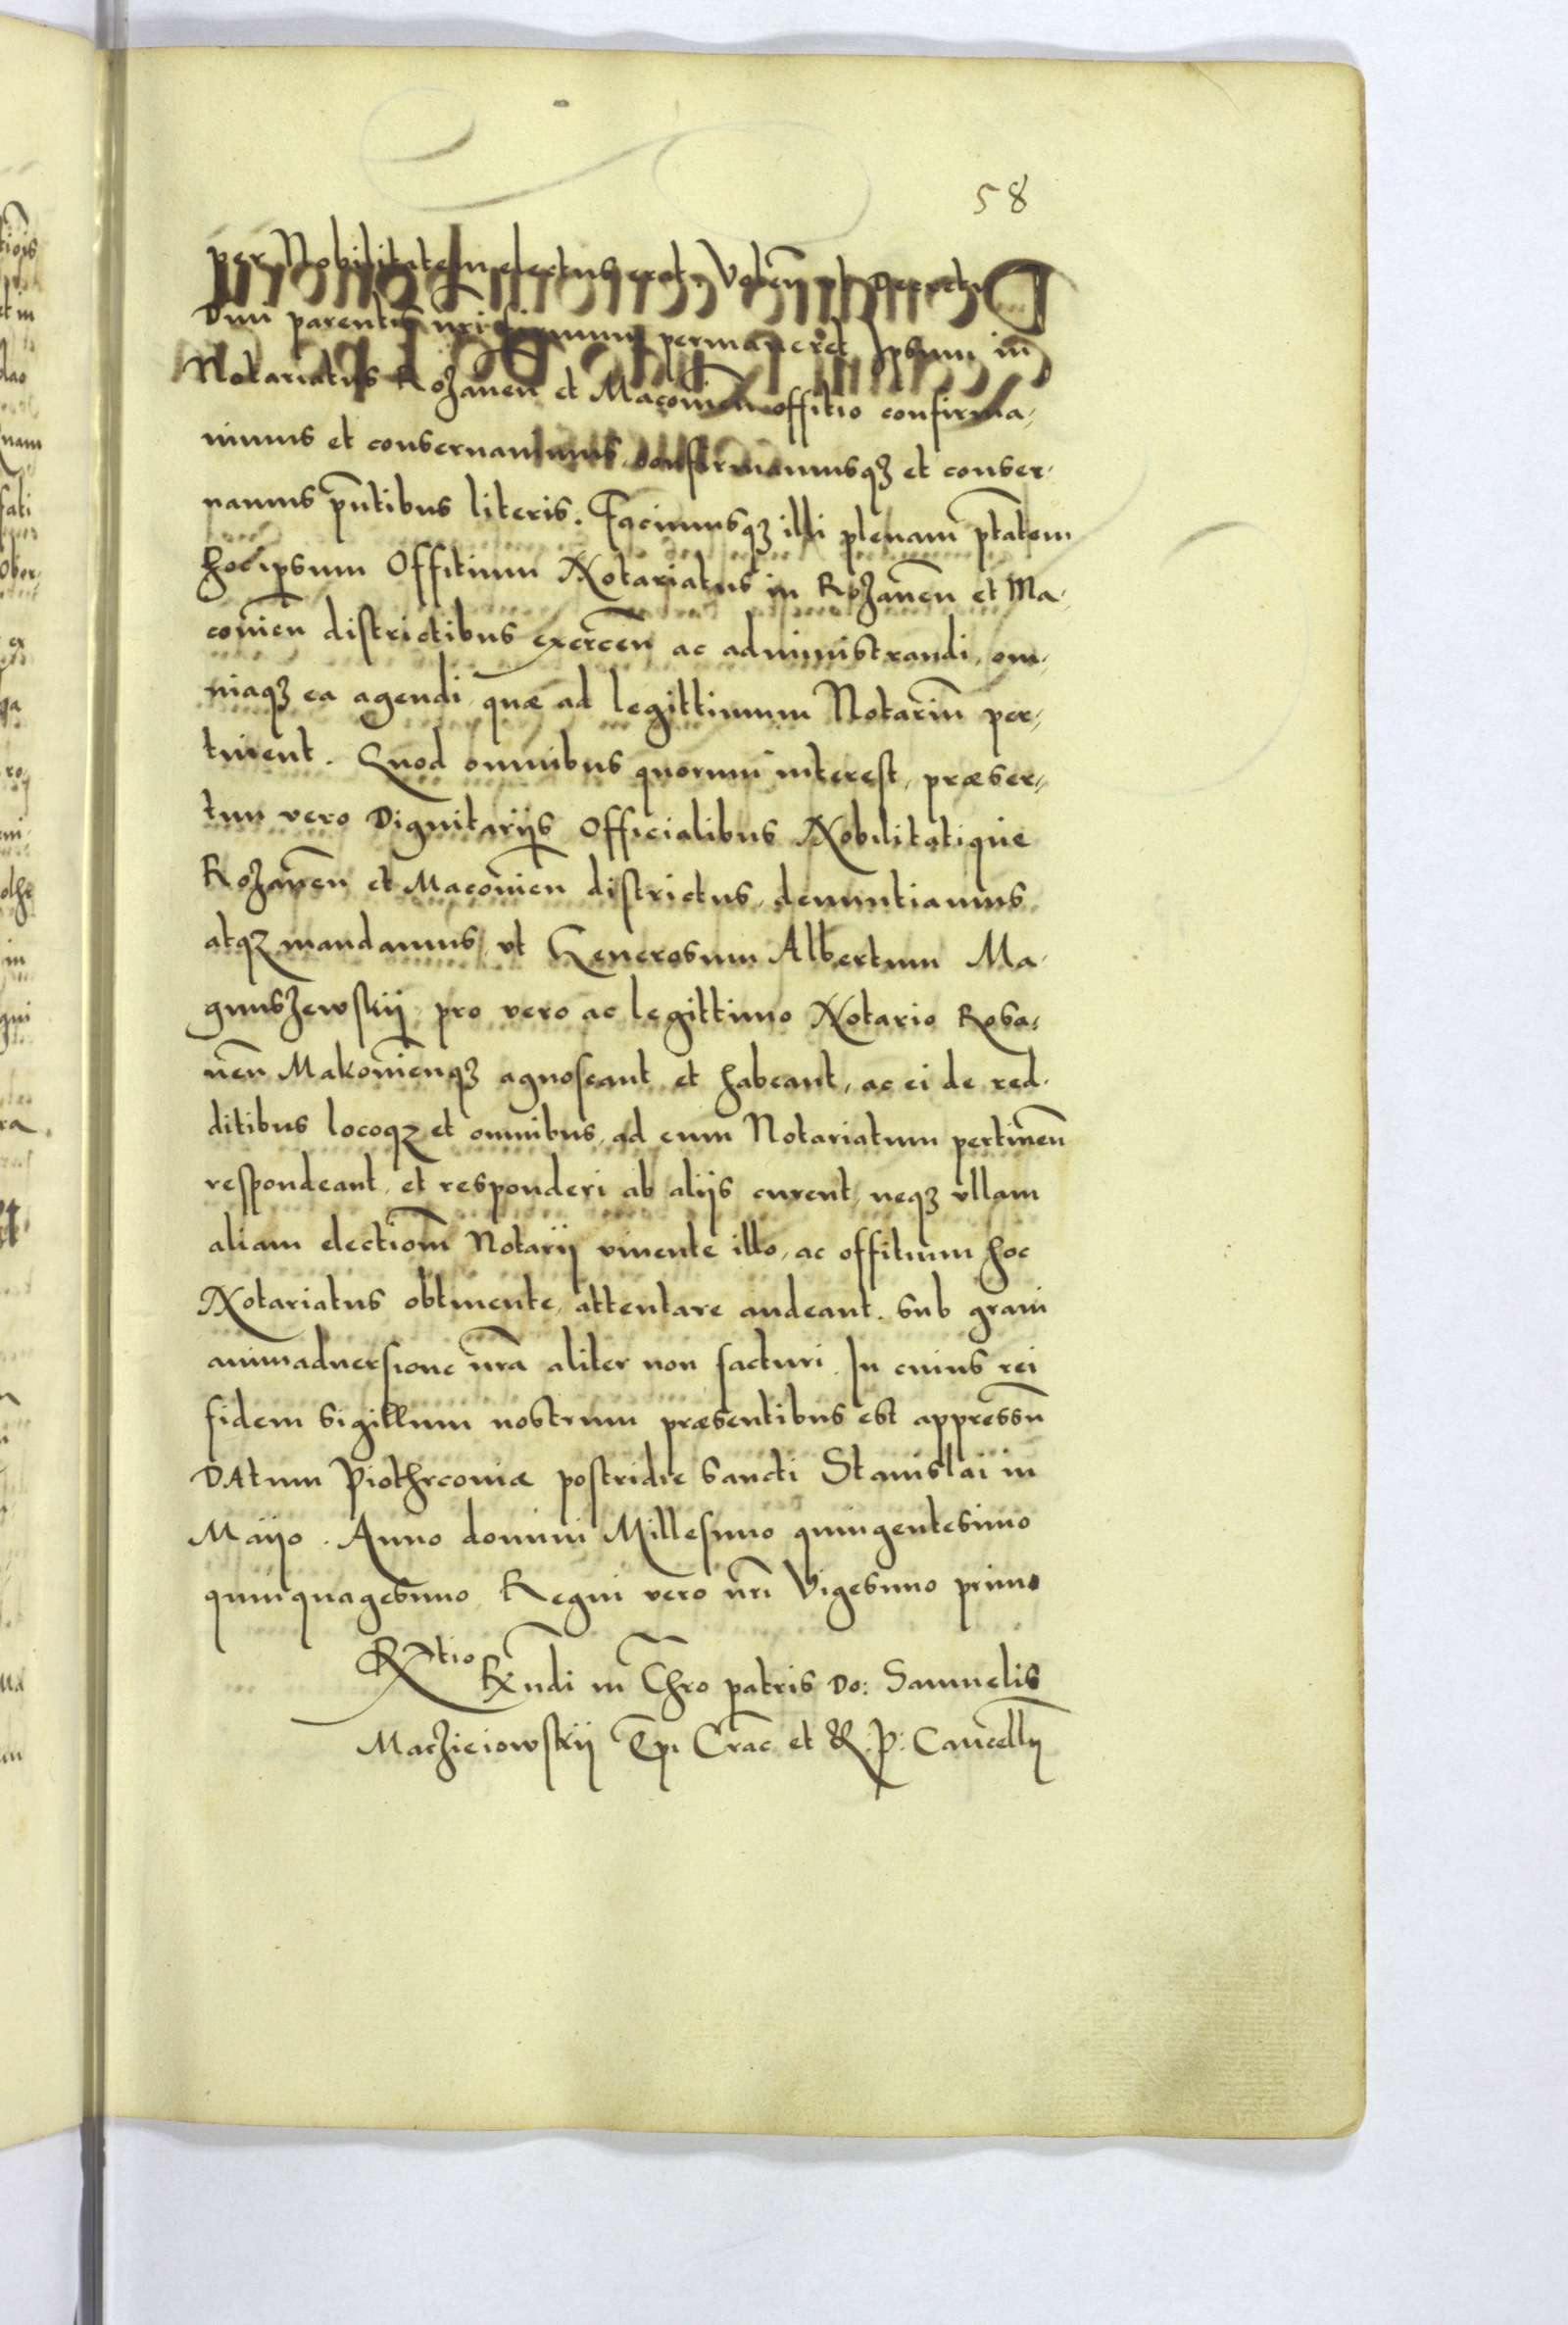 58
per Nobilitatem electus erat. Volen̄ ut Decretū
Diui parentis nr̄i firmum permaneret Ipsum in
Notariatus Rozanen̄ et Maconien̄ offitio confirma,
uimus et conseruauimus, confirmamusqȝ et conser,
uamus pn̄tibus literis. Facimusqȝ illi plenam ptātem
hoc ipsum Offitium Notariatus in Rozanen̄ et Ma,
conien̄ districtibus exercen̄ ac administrandi, om,
niaqȝ ea agendi, quæ ad legittimum Notariū per,
tinent. Quod omnibus quorum interest, præser,
tim vero Dignitarijs Officialibus Nobilitatique
Rozanen̄ et Maconien̄ districtus, denuntiamus
atqȝ mandamus, vt Generosum Albertum Ma,
gnuszewskij pro vero ac legittimo Notario Rosa,
nen̄ Makonien̄qȝ agnoscant et habeant, ac ei de red,
ditibus locoqȝ et omnibus, ad eum Notariatum pertinen̄
respondeant, et responderi ab alijs curent, neqȝ vllam
aliam electiom̄ Notarij viuente illo, ac offitium hoc
Notariatus obtinente, attentare audeant. sub graui
animaduersione nr̄a aliter non facturi. In cuius rei
fidem sigillum nostrum præsentibus est appressū
DAtum Piothrcoviæ postridie Sancti Stanislai in
Maijo. Anno domini Millesimo quingentesimo
quinquagesimo, Regni vero nr̄i Vigesimo primo
Rtio Rn̄di in Chr̄o patris Do: Samuelis
Macziejowskij Ep̄i Crac̄ et R. P. Cancellīj